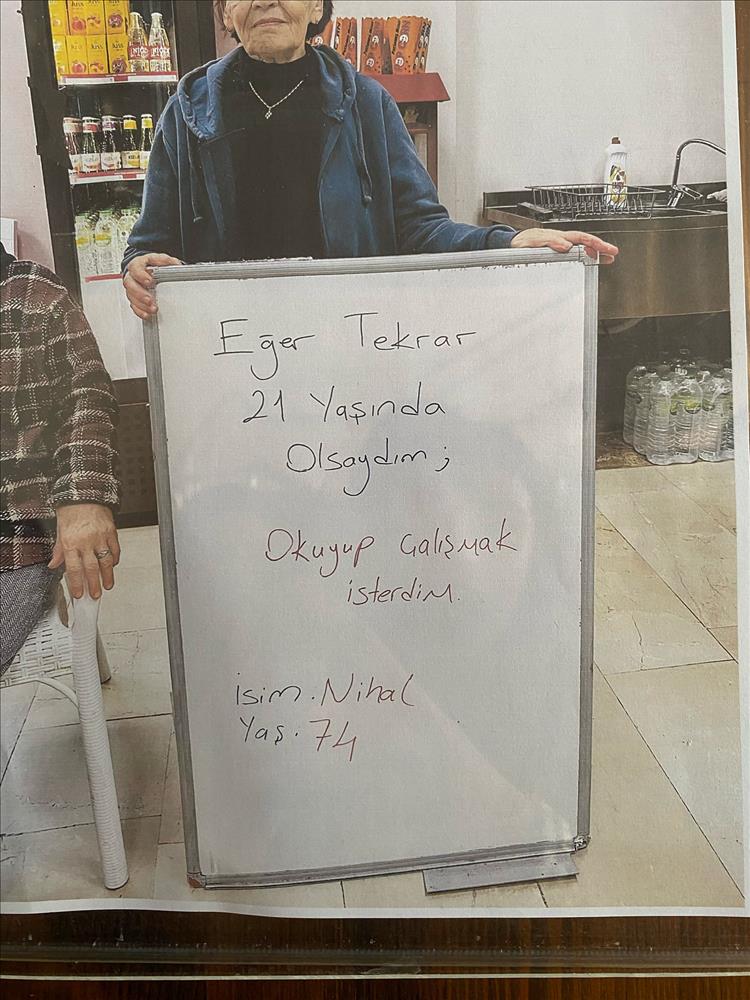 Eğer Tekrar
21 Yaşında
Olsaydım;
Okuyup Çalışmak
isterdim.
isim. Nihal
Yaş. 74